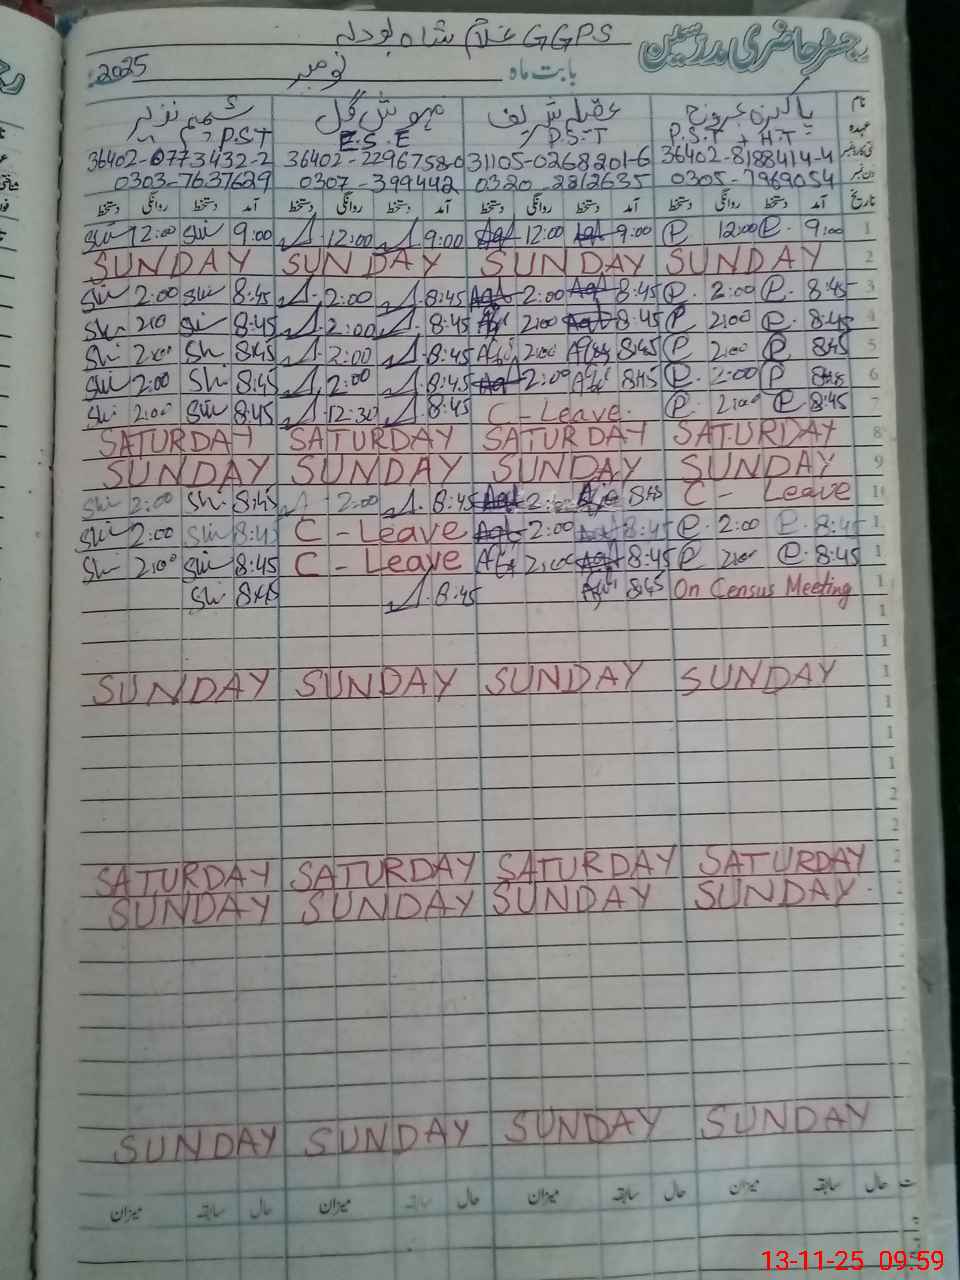 رجسٹر حاضری مدرسین GGPS غلام شاہ بودلہ
بابت ماہ نومبر 2025
نام پاکیزہ عروج عقیلہ شریف مہوش گل شمیم نزیر
عہدہ P.S.T + H.T P.S.T E.S.E P.S.T
36402-8188414-4 31105-0268201-6 36402-2296758-0 36402-0773432-2
0305-7969054 0320-2812635 0307-399442 0303-7637629
تاریخ آمد دستخط روانگی دستخط آمد دستخط روانگی دستخط آمد دستخط روانگی دستخط آمد دستخط روانگی دستخط
1 9:00 P. 12:00 P 9:00 12:00 9:00 12:00 9:00 12:00
2 SUNDAY SUNDAY SUNDAY SUNDAY
3 8:45 P. 2:00 P. 8:45 2:00 8:45 2:00 8:45 2:00
4 8:45 P. 2:00 P 8:45 2:00 8:45 2:00 8:45 2:00
5 8:45 P 2:00 P 8:45 2:00 8:45 2:00 8:45 2:00
6 8:45 P 2:00 P. 8:45 2:00 8:45 2:00 8:45 2:00
7 8:45 P 2:00 P. C-Leave. 8:45 12:30 8:45 2:00
8 SATURDAY SATURDAY SATURDAY SATURDAY
9 SUNDAY SUNDAY SUNDAY SUNDAY
C- Leave 8:45 8:45 2:00 8:45 2:00
1 8:45 P. 2:00 P. 8:45 2:00 C - Leave 8:45 2:00
1 8:45 P. 2:00 P. 8:45 2:00 C - Leave 8:45 2:00
1 On Census Meeting 8:45 8:45 8:45
1
1
1 SUNDAY SUNDAY SUNDAY SUNDAY
1
1
1
2
2
2 SATURDAY SATURDAY SATURDAY SATURDAY
SUNDAY SUNDAY SUNDAY SUNDAY
SUNDAY SUNDAY SUNDAY SUNDAY
حال سابقہ میزان حال سابقہ میزان حال سابقہ میزان حال سابقہ میزان
13-11-25 09:59